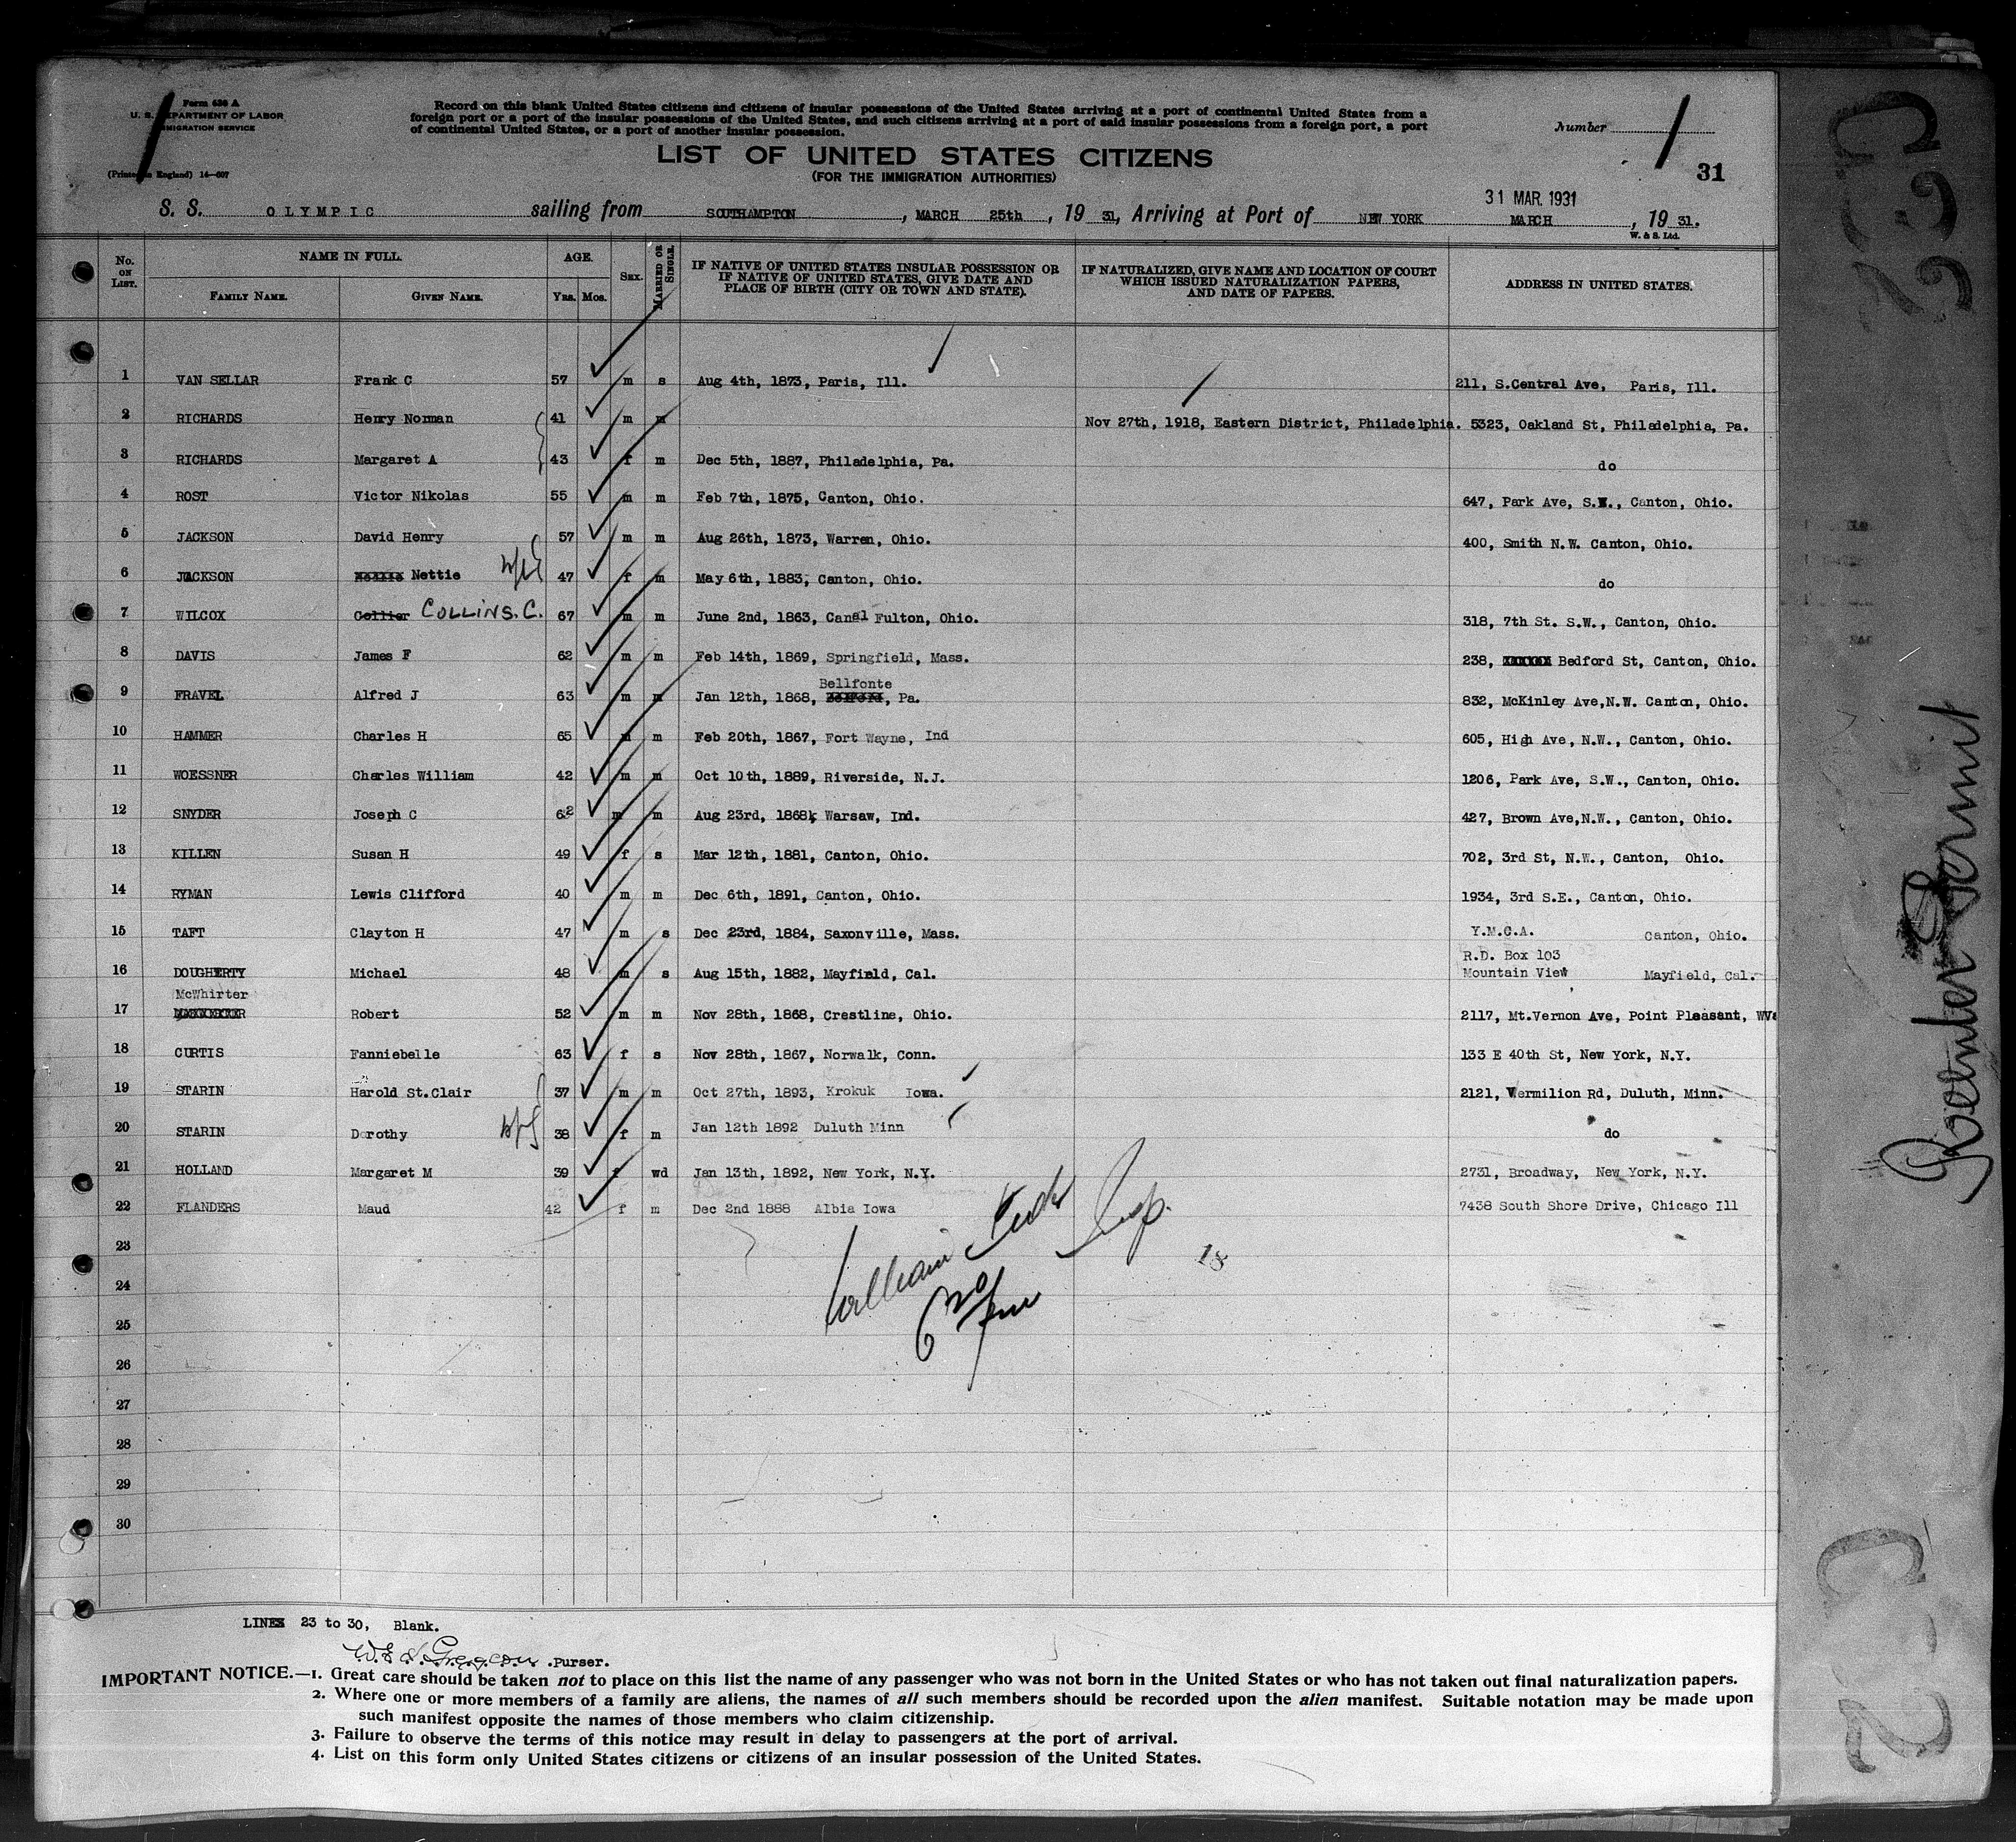 Form 630 A
U. S. DEPARTMENT OF LABOR
IMMIGRATION SERVICE
(Printed in England) 14—607
Record on this blank United States citizens and citizens of insular possessions of the United States arriving at a port of continental United States from a
foreign port or a port of the insular possessions of the United States, and such citizens arriving at a port of said insular possessions from a foreign port, a port
of continental United States, or a port of another insular possession.
Number
LIST OF UNITED STATES CITIZENS
(FOR THE IMMIGRATION AUTHORITIES)
31
31 MAR. 1931
S. S. OLYMPIC sailing from SOUTHAMPTON, MARCH 25th, 19 31, Arriving at Port of NEW YORK MARCH, 19 31.
W. & S. Ltd.
No. ON LIST. NAME IN FULL. FAMILY NAME. GIVEN NAME. AGE. YRS. MOS. SEX. MARRIED OR SINGLE. IF NATIVE OF UNITED STATES INSULAR POSSESSION OR IF NATIVE OF UNITED STATES, GIVE DATE AND PLACE OF BIRTH (CITY OR TOWN AND STATE). IF NATURALIZED, GIVE NAME AND LOCATION OF COURT WHICH ISSUED NATURALIZATION PAPERS, AND DATE OF PAPERS. ADDRESS IN UNITED STATES.
1 VAN SELLAR Frank C 57 m s Aug 4th, 1873, Paris, Ill. 211, S.Central Ave, Paris, Ill.
2 RICHARDS Henry Norman 41 m m Nov 27th, 1918, Eastern District, Philadelphia. 5323, Oakland St, Philadelphia, Pa.
3 RICHARDS Margaret A 43 f m Dec 5th, 1887, Philadelphia, Pa. do
4 ROST Victor Nikolas 55 m m Feb 7th, 1875, Canton, Ohio. 647, Park Ave, S.W., Canton, Ohio.
5 JACKSON David Henry 57 m m Aug 26th, 1873, Warren, Ohio. 400, Smith N.W. Canton, Ohio.
6 JACKSON Nettie 47 f m May 6th, 1883, Canton, Ohio. do
7 WILCOX Collier COLLINS. C. 67 m m June 2nd, 1863, Canal Fulton, Ohio. 318, 7th St. S.W., Canton, Ohio.
8 DAVIS James F 62 m m Feb 14th, 1869, Springfield, Mass. 238, Bedford St, Canton, Ohio.
9 FRAVEL Alfred J 63 m m Jan 12th, 1868, Bellfonte, Pa. 832, McKinley Ave,N.W. Canton, Ohio.
10 HAMMER Charles H 65 m m Feb 20th, 1867, Fort Wayne, Ind 605, High Ave, N.W., Canton, Ohio.
11 WOESSNER Charles William 42 m m Oct 10th, 1889, Riverside, N.J. 1206, Park Ave, S.W., Canton, Ohio.
12 SNYDER Joseph C 62 m m Aug 23rd, 1868, Warsaw, Ind. 427, Brown Ave,N.W., Canton, Ohio.
13 KILLEN Susan H 49 f s Mar 12th, 1881, Canton, Ohio. 702, 3rd St, N.W., Canton, Ohio.
14 RYMAN Lewis Clifford 40 m m Dec 6th, 1891, Canton, Ohio. 1934, 3rd S.E., Canton, Ohio.
15 TAFT Clayton H 47 m s Dec 23rd, 1884, Saxonville, Mass. Y.M.C.A. Canton, Ohio.
R.D. Box 103
16 DOUGHERTY Michael 48 m s Aug 15th, 1882, Mayfield, Cal. Mountain View Mayfield, Cal.
McWhirter
17 Robert 52 m m Nov 28th, 1868, Crestline, Ohio. 2117, Mt.Vernon Ave, Point Pleasant, WVa
18 CURTIS Fanniebelle 63 f s Nov 28th, 1867, Norwalk, Conn. 133 E 40th St, New York, N.Y.
19 STARIN Harold St.Clair 37 m m Oct 27th, 1893, Krokuk Iowa. 2121, Vermilion Rd, Duluth, Minn.
20 STARIN Dorothy 38 f m Jan 12th 1892 Duluth Minn do
21 HOLLAND Margaret M 39 f wd Jan 13th, 1892, New York, N.Y. 2731, Broadway, New York, N.Y.
22 FLANDERS Maud 42 f m Dec 2nd 1888 Albia Iowa 7438 South Shore Drive, Chicago Ill
23
24
25
26
27
28
29
30
William Insp.
18
LINES 23 to 30, Blank.
.Purser.
IMPORTANT NOTICE.—1. Great care should be taken not to place on this list the name of any passenger who was not born in the United States or who has not taken out final naturalization papers.
2. Where one or more members of a family are aliens, the names of all such members should be recorded upon the alien manifest. Suitable notation may be made upon
such manifest opposite the names of those members who claim citizenship.
3. Failure to observe the terms of this notice may result in delay to passengers at the port of arrival.
4. List on this form only United States citizens or citizens of an insular possession of the United States.